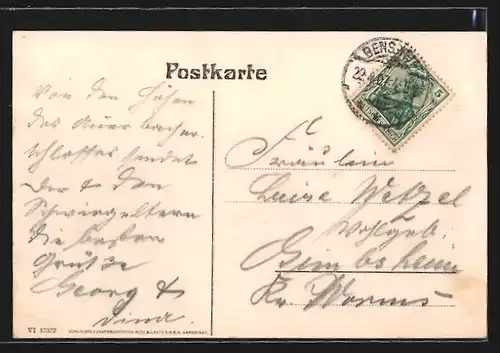 Postkarte
BENSHEIM
5
Von den Höhen
des Auerbacher
Schlosses sendet
Dir & den
Schwiegeltern
die besten
Grüße
Georg &
Dina
Fräulein
Luise Wetzel
Wohlgeb.
Gimbsheim
Kr. Worms
VI 17372